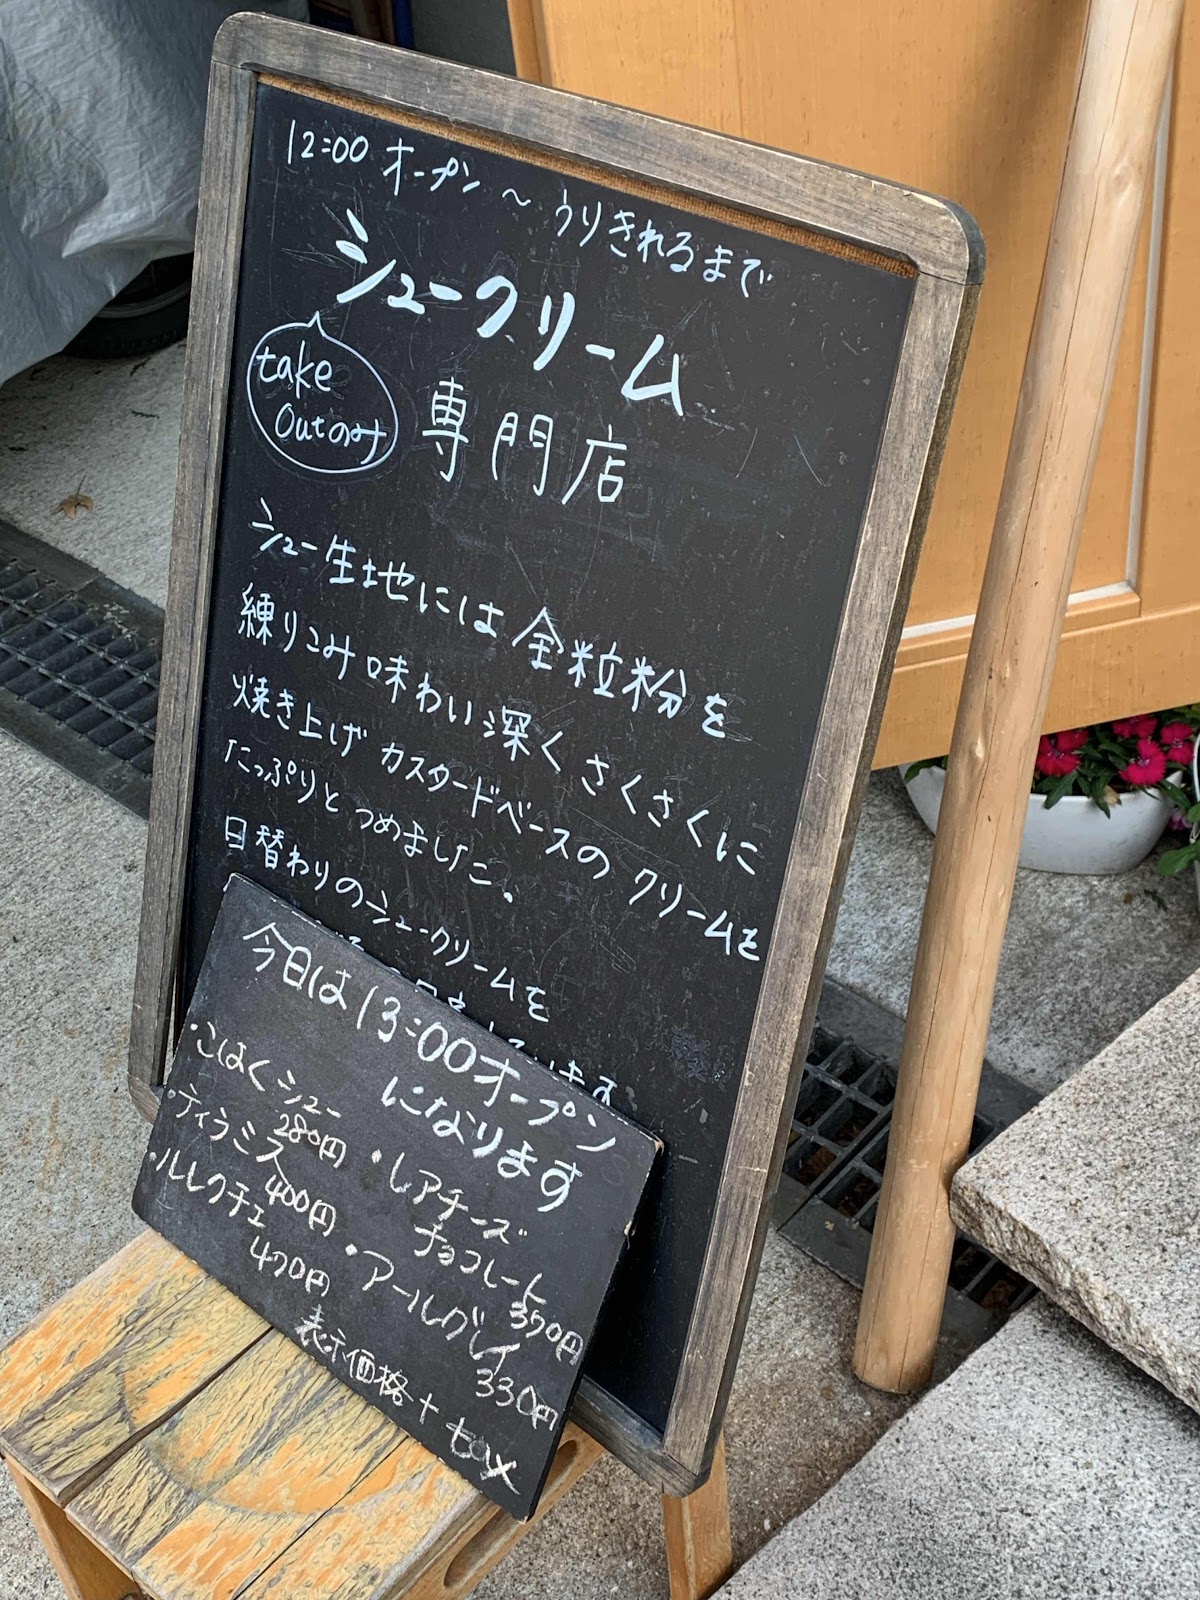 12:00 オープン ~ うりきれるまで
シュークリーム
take
Outのみ
専門店
シュー生地には全粒粉を
練りこみ味わい深くさくさくに
焼き上げ カスタードベースの クリームを
たっぷりと つめました。
日替わりのシュークリームを
ます
今日は13:00オープン
になります
・こはくシュー
280円
・ティラミス
400円
・ルレクチェ
470円
・レアチーズ
チョコレート
350円
・アールグレイ
330円
表示価格+tax